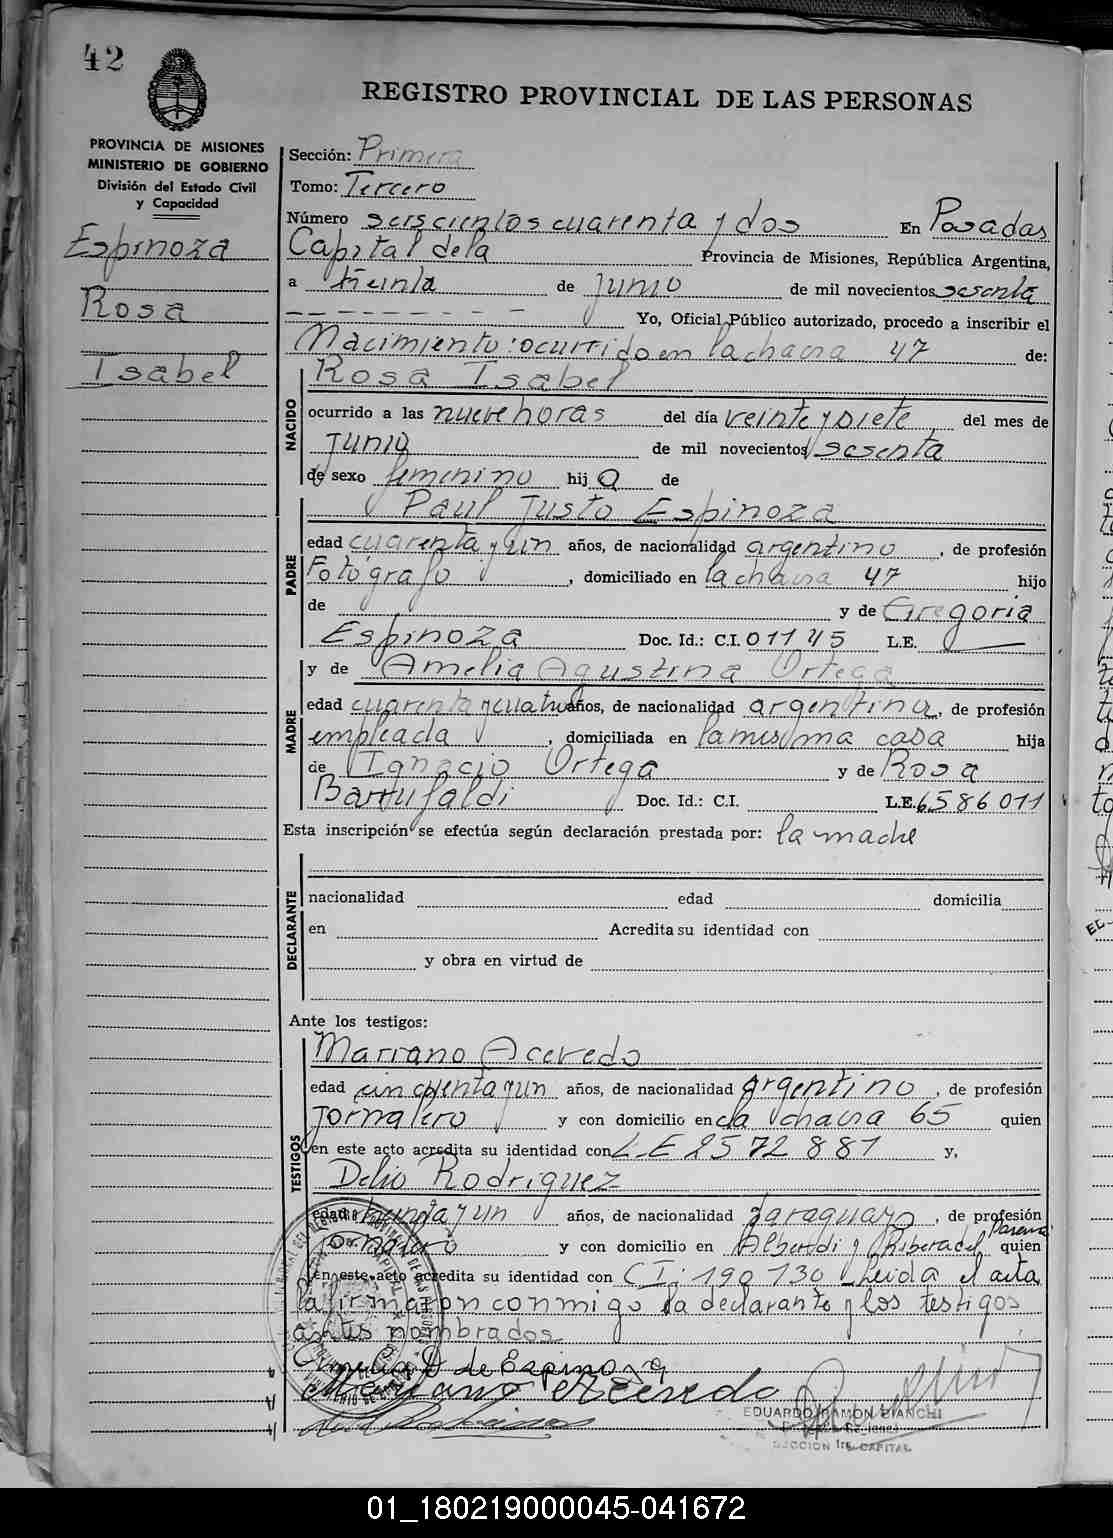 42
REGISTRO PROVINCIAL DE LAS PERSONAS
PROVINCIA DE MISIONES
MINISTERIO DE GOBIERNO
División del Estado Civil
y Capacidad
Espinoza
Rosa
Isabel
Sección: Primera
Tomo: Tercero
Número seiscientos cuarenta y dos En Posadas
Capital de la Provincia de Misiones, República Argentina,
a treinta de junio de mil novecientos sesenta
Yo, Oficial Público autorizado, procedo a inscribir el
Nacimiento: ocurrido en la chacra 47 de:
Rosa Isabel
NACIDO
ocurrido a las nueve horas del día veinte y siete del mes de
junio de mil novecientos sesenta
de sexo femenino hija de
Paul Justo Espinoza
PADRE
edad cuarenta y un años, de nacionalidad argentino, de profesión
Fotógrafo, domiciliado en la chacra 47 hijo
de y de Gregoria
Espinoza Doc. Id.: C.I. 01145 L.E.
y de Amelia Agustina Ortega
MADRE
edad cuarenta y cuatro años, de nacionalidad argentina, de profesión
empleada, domiciliada en la misma casa hija
de Ignacio Ortega y de Rosa
Doc. Id.: C.I. L.E. 6586011
Esta inscripción se efectúa según declaración prestada por: la madre
DECLARANTE
nacionalidad edad domicilia
en Acredita su identidad con
y obra en virtud de
Ante los testigos:
Mariano Acevedo
TESTIGOS
edad cincuenta y un años, de nacionalidad argentino, de profesión
Jornalero y con domicilio en la chacra 65 quien
en este acto acredita su identidad con L E 2572881 y,
Delio Rodriguez
edad treinta y un años, de nacionalidad paraguayo, de profesión
Jornalero y con domicilio en Alberdi y Ribera del Parana quien
en este acto acredita su identidad con C I: 190 130 Leida el acta
la firmaron conmigo la declarante y los testigos
antes nombrados.
Amelia O de Espinoza
Mariano Acevedo
EDUARDO RAMON BIANCHI
SECCION 1ra. CAPITAL
01_180219000045-041672